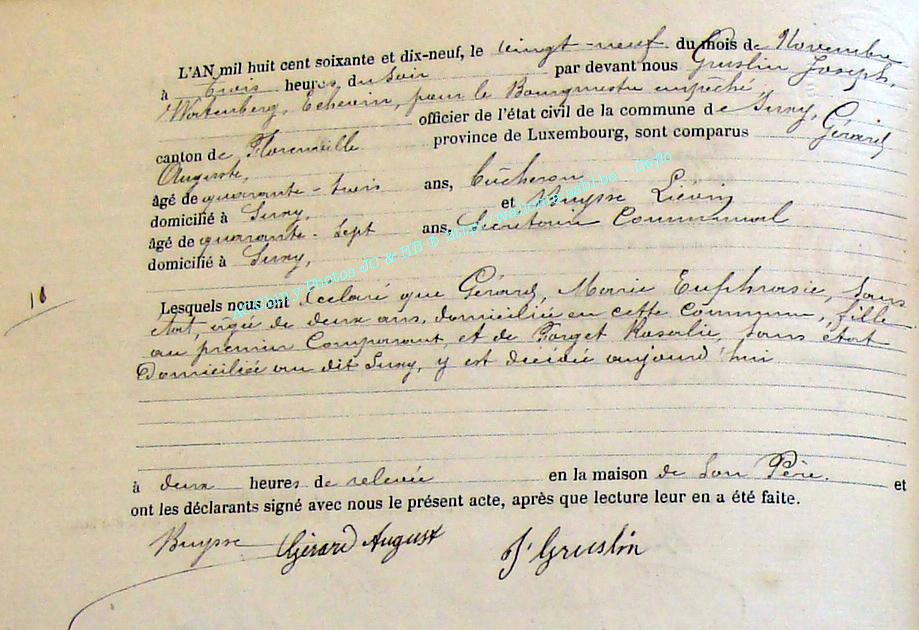 L'AN mil huit cent soixante et dix-neuf, le vingt-neuf du mois de Novembre
à trois heures du soir par devant nous Gruslin Joseph,
Watenberg, Echevin, pour le Bourgmestre empêché,
officier de l'état civil de la commune de Suxy,
canton de Florenville province de Luxembourg, sont comparus Gérard
Auguste,
âgé de quarante-trois ans, bûcheron
domicilié à Suxy, et Buysse Liévin
âgé de quarante-sept ans, Secrétaire Communal
domicilié à Suxy,
Lesquels nous ont déclaré que Gérard, Marie Euphrasie, sans
état, agée de deux ans, domiciliée en cette Commune, fille
au premier Comparant, et de Forget Rosalie, sans état
domiciliée au dit Suxy, y est décédée aujourd'hui
10
à deux heures de relevée en la maison de son Père. et
ont les déclarants signé avec nous le présent acte, après que lecture leur en a été faite.
Buysse Gérard August J. Gruslin